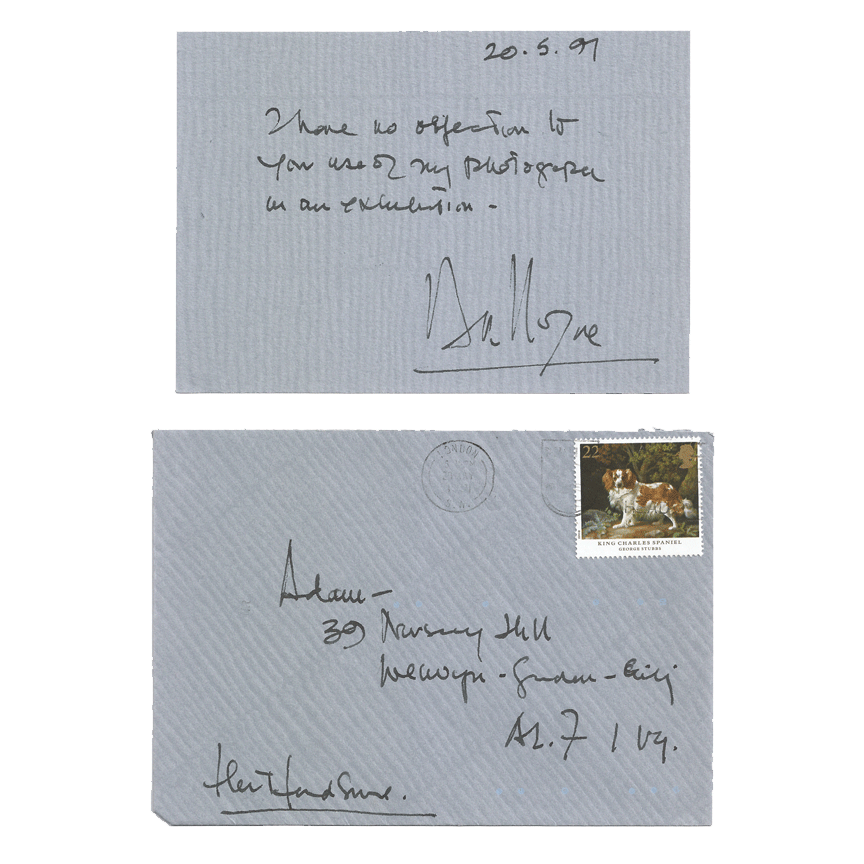 20.5.91
I have no objection to
you use of my photograph
in an exhibition -
LONDON
22
KING CHARLES SPANIEL
GEORGE STUBBS
Adam -
39 Nursery Hill
Welwyn - Garden - City
AL.7 1
Hertfordshire.